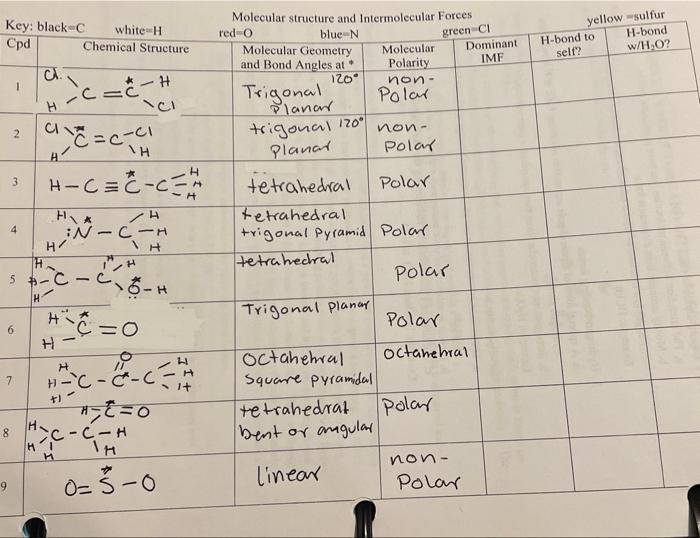 Molecular structure and Intermolecular Forces
Key: black=C white=H red=O blue=N green=Cl yellow=sulfur
Cpd Chemical Structure Molecular Geometry and Bond Angles at * Molecular Polarity Dominant IMF H-bond to self? H-bond w/H₂O?
1
Cl H
C = C*
H Cl
Trigonal 120°
Planar
non-
Polar
2
Cl
C* = C-Cl
H H
trigonal 120°
Planar
non-
polar
3
H
H-C≡C*-C-H
H
tetrahedral
Polar
4
H H
:N* - C - H
H H
tetrahedral
trigonal pyramid
Polar
5
H H H
H-C - C
H O*-H
tetrahedral
polar
6
H
C* = O
H
Trigonal planar
Polar
7
H O H
H-C - C* - C - H
H H
Octahehral
Square pyramidal
Octahehral
8
H-C*=O
H C - C - H
H H H
tetrahedral
bent or angular
polar
9
O=S*-O
linear
non-
Polar